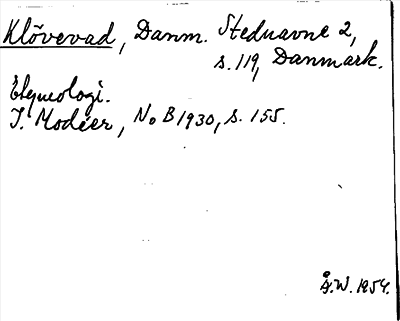 Klövevad, Danm. Stednavne 2,
s. 119, Danmark.
Etymologi.
I. Modéer, NoB 1930, s. 155.
Å.W. 1954.